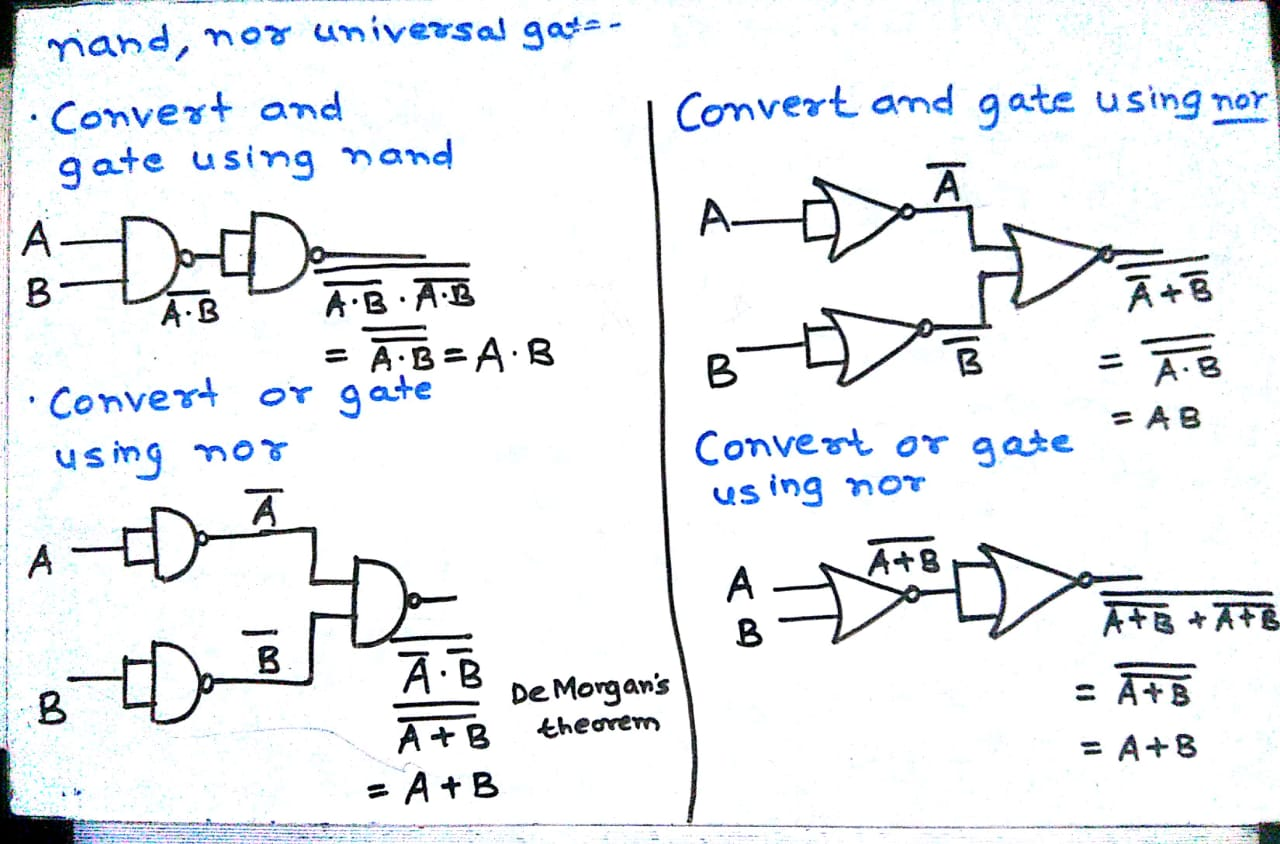 nand, nor universal gate-
· Convert and
gate using nand
A
B
A̅·̅B̅
A̅·̅B̅ · A̅·̅B̅
= A̅·̅B̅ = A·B
· Convert or gate
using nor
A
A̅
B
B̅
A̅ · B̅
A̅ + B̅
DeMorgan's
theorem
= A + B
Convert and gate using nor
A
A̅
B
B̅
A̅ + B̅
= A̅·̅B̅
= AB
Convert or gate
using nor
A
B
A̅+̅B̅
A̅+̅B̅ + A̅+̅B̅
= A̅+̅B̅
= A+B